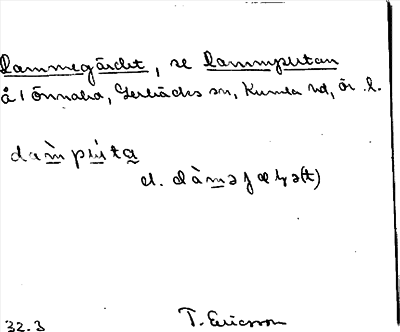 Dammegärdet, se Dammputan
å i Önnabo, Gerbäcks sn, Kumla hd, Ör. l.
dam̀pu̇́ta
el. dàməjæɭə(t)
32.3 T. Ericsson